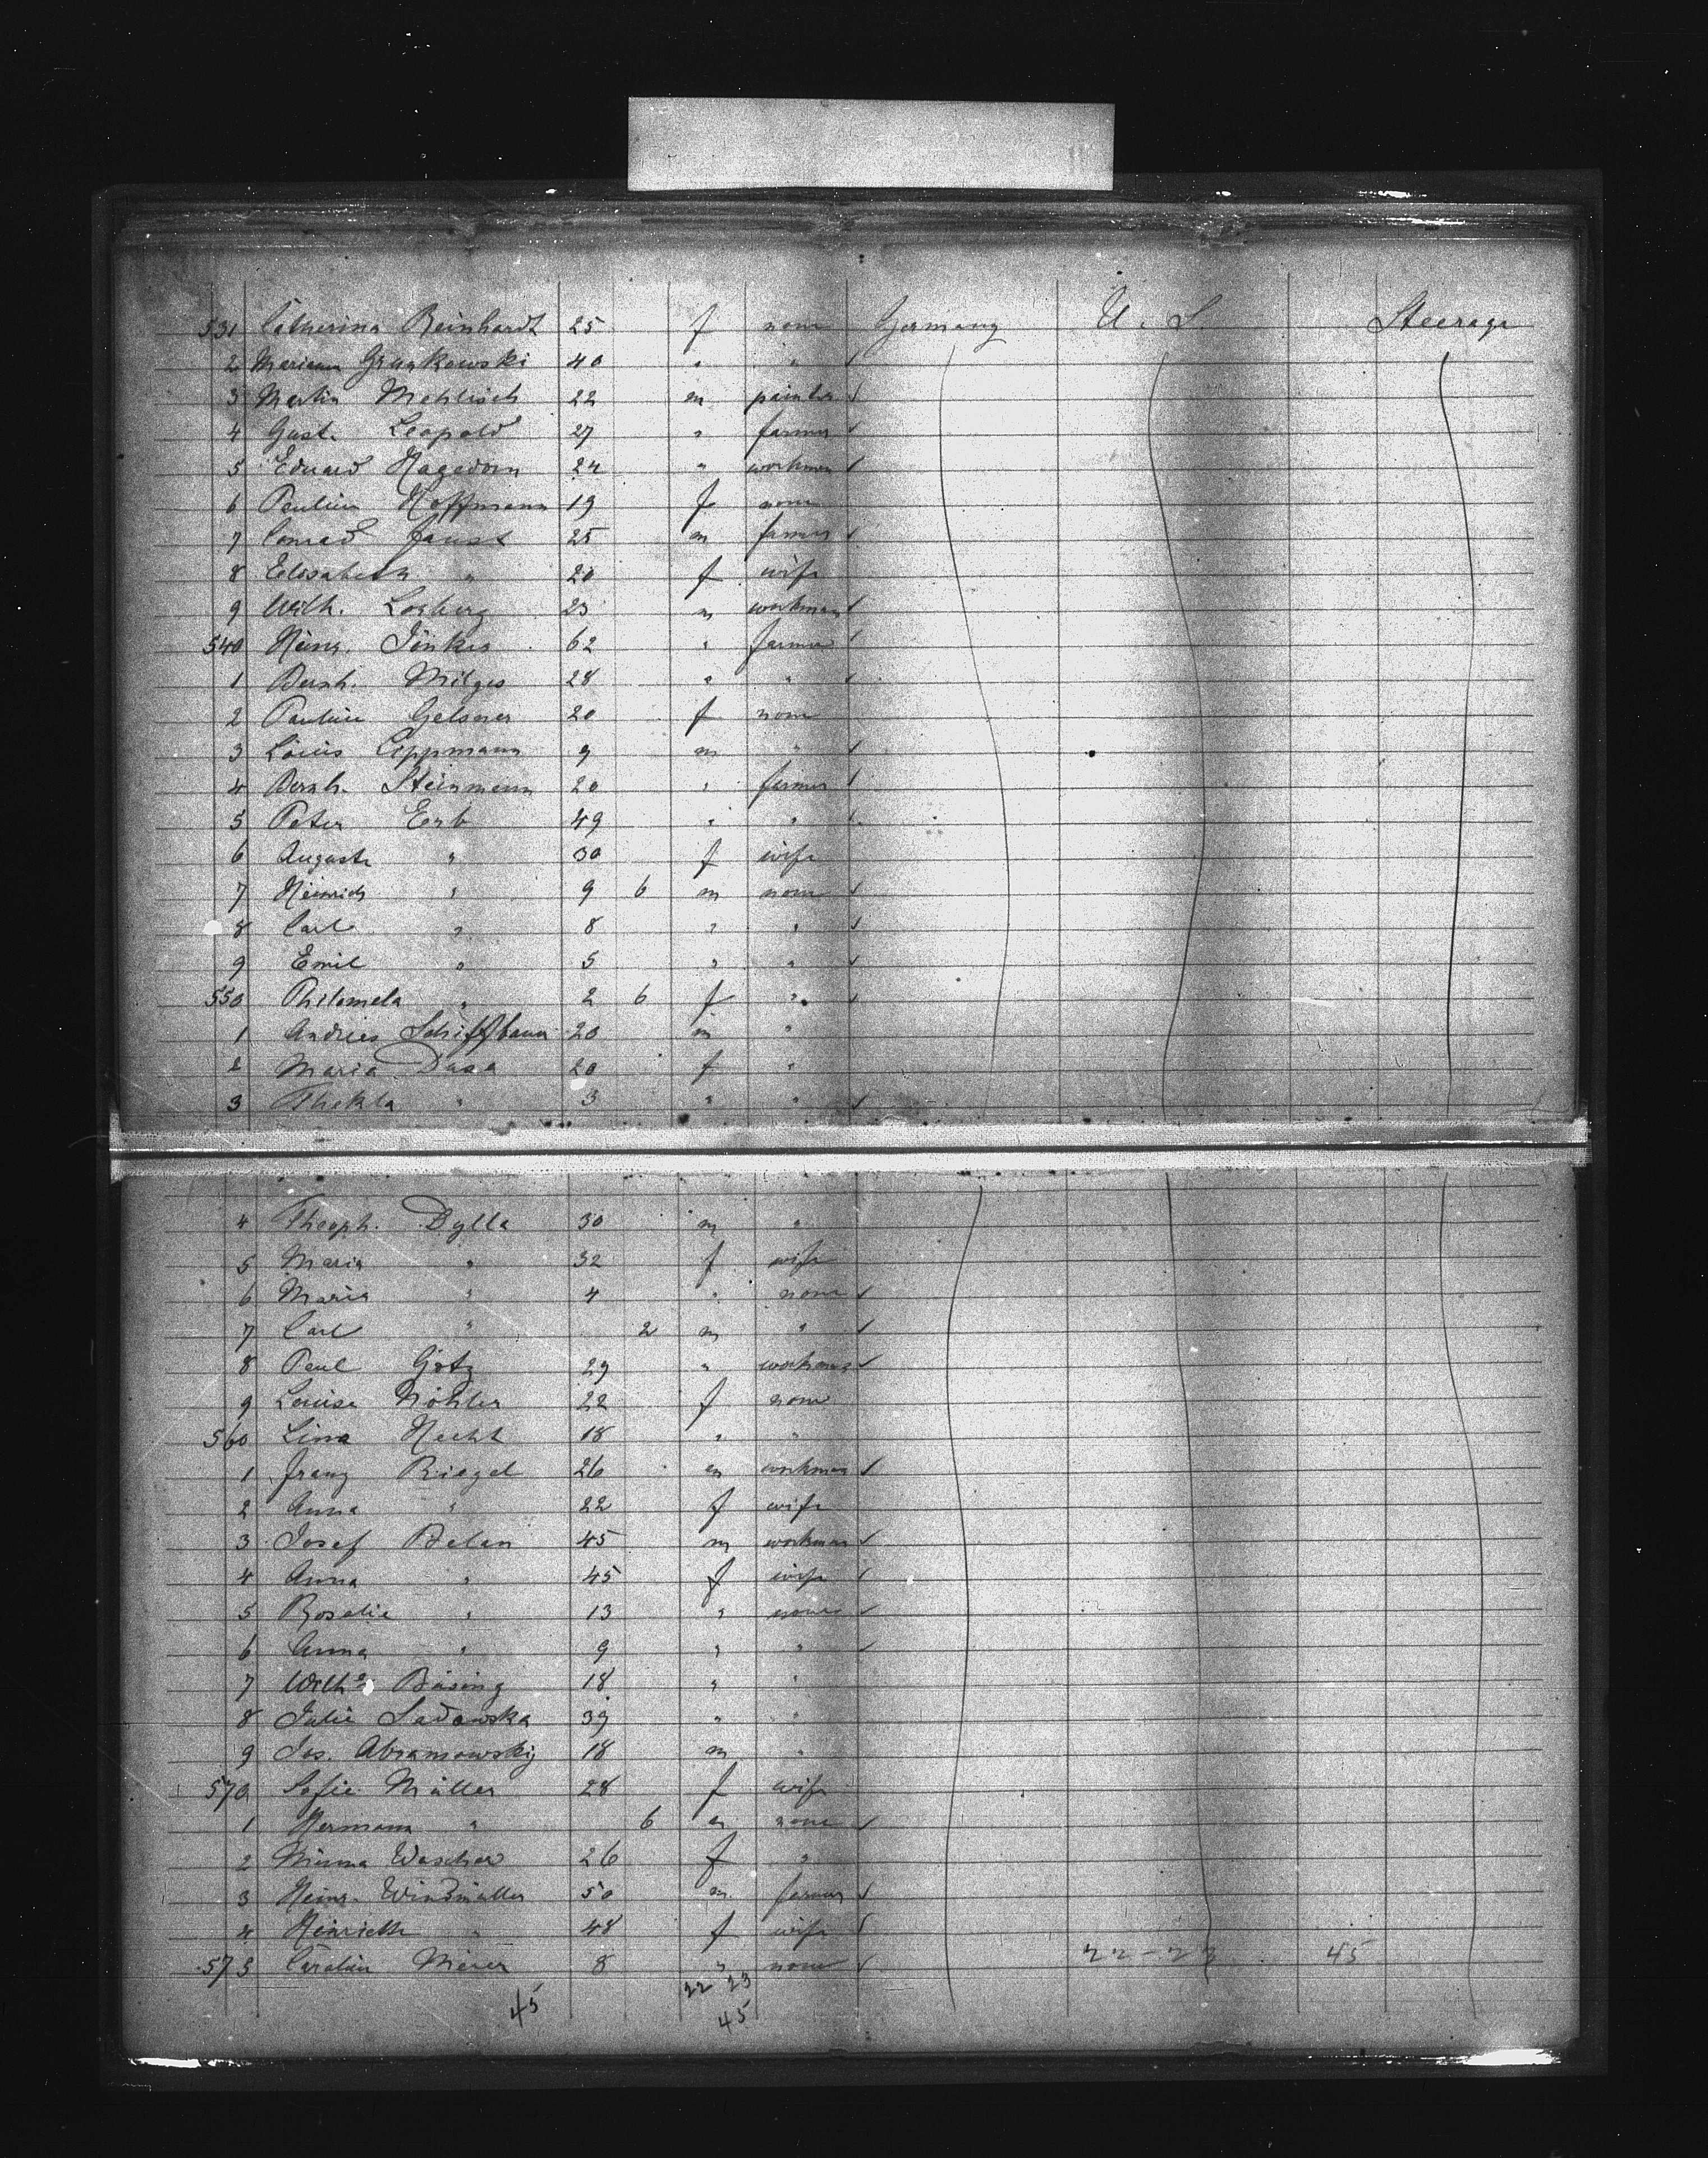 531 Catherina Reinhardt 25 f none Germany U. S. Steerage
2 Mariann 40 " "
3 Martin Mehlisch 22 m painter
4 Gust. Leopold 27 " farmer
5 Eduard Hagedorn 24 " workman
6 Pauline Hoffmann 19 f none
7 Conrad Faust 25 m farmer
8 Elisabeth " 20 f wife
9 Wilh. 23 m workman
540 Heinr. Jünker 62 " farmer
1 Bernh. Milges 28 " "
2 Pauline Gelsner 20 f none
3 Louis Lippmann 9 m "
4 Bernh. Steinmann 20 " farmer
5 Peter Erb 49 " "
6 Auguste " 30 f wife
7 Heinrich " 9 6 m none
8 Carl " 8 " "
9 Emil " 5 " "
550 Philomela " 2 6 f "
1 Andreas Schiffbauer 20 m "
2 Maria Dasa 20 f "
3 Thekla " 3 " "
4 Theoph. Dylla 30 m "
5 Maria " 32 f wife
6 Maria " 4 " none
7 Carl " 2 m "
8 Paul Götz 29 " workman
9 Louise Möhler 22 f none
560 Lina Hecht 18 " "
1 Franz Riegel 26 m workman
2 Anna " 22 f wife
3 Josef Belan 45 m workman
4 Anna " 45 f wife
5 Rosalie " 13 " none
6 Anna " 9 " "
7 Wilhe Büsing 18 " "
8 Julie Sadowska 39 " "
9 Jos. Abramowsky 18 m "
570 Sofie Müller 28 f wife
1 Hermann " 6 m none
2 Minna Wascher 26 f "
3 Heinr. Windmüller 50 m farmer
4 Henriette " 48 f wife
575 Caroline Meier 8 " none 22-23 45
22 23
45 45